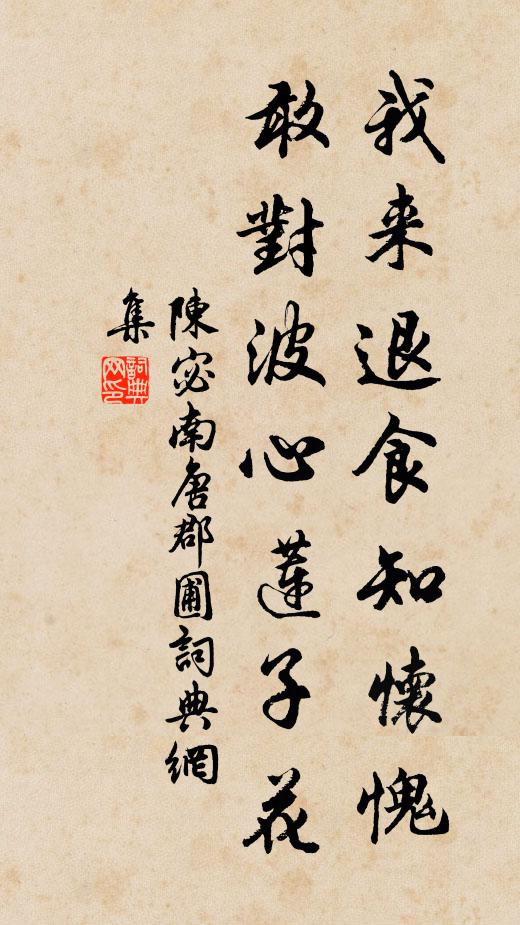 我来退食知懷愧
敢對波心蓮子花
陳宓南唐郡圃詞典網
集
詞典网印